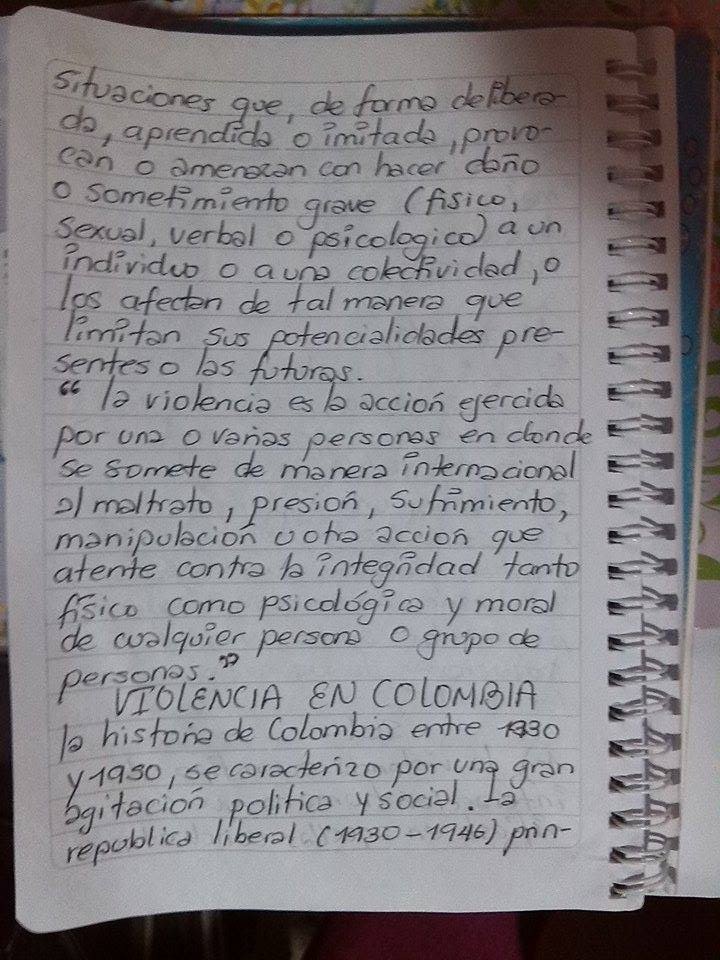 situaciones que, de forma delibera-
da, aprendida o imitada, provo-
can o amenazan con hacer daño
o sometimiento grave (fisico,
sexual, verbal o psicologico) a un
individuo o a una colectividad, o
los afectan de tal manera que
limitan sus potencialidades pre-
sentes o las futuras.
" la violencia es la acción ejercida
por una o varias personas en donde
se somete de manera internacional
al maltrato, presión, sufrimiento,
manipulación u otra acción que
atente contra la integridad tanto
físico como psicológica y moral
de cualquier persona o grupo de
personas."
VIOLENCIA EN COLOMBIA
la historia de Colombia entre 1930
y 1950, se caracterizo por una gran
agitación politica y social. La
republica liberal (1930-1946) prin-